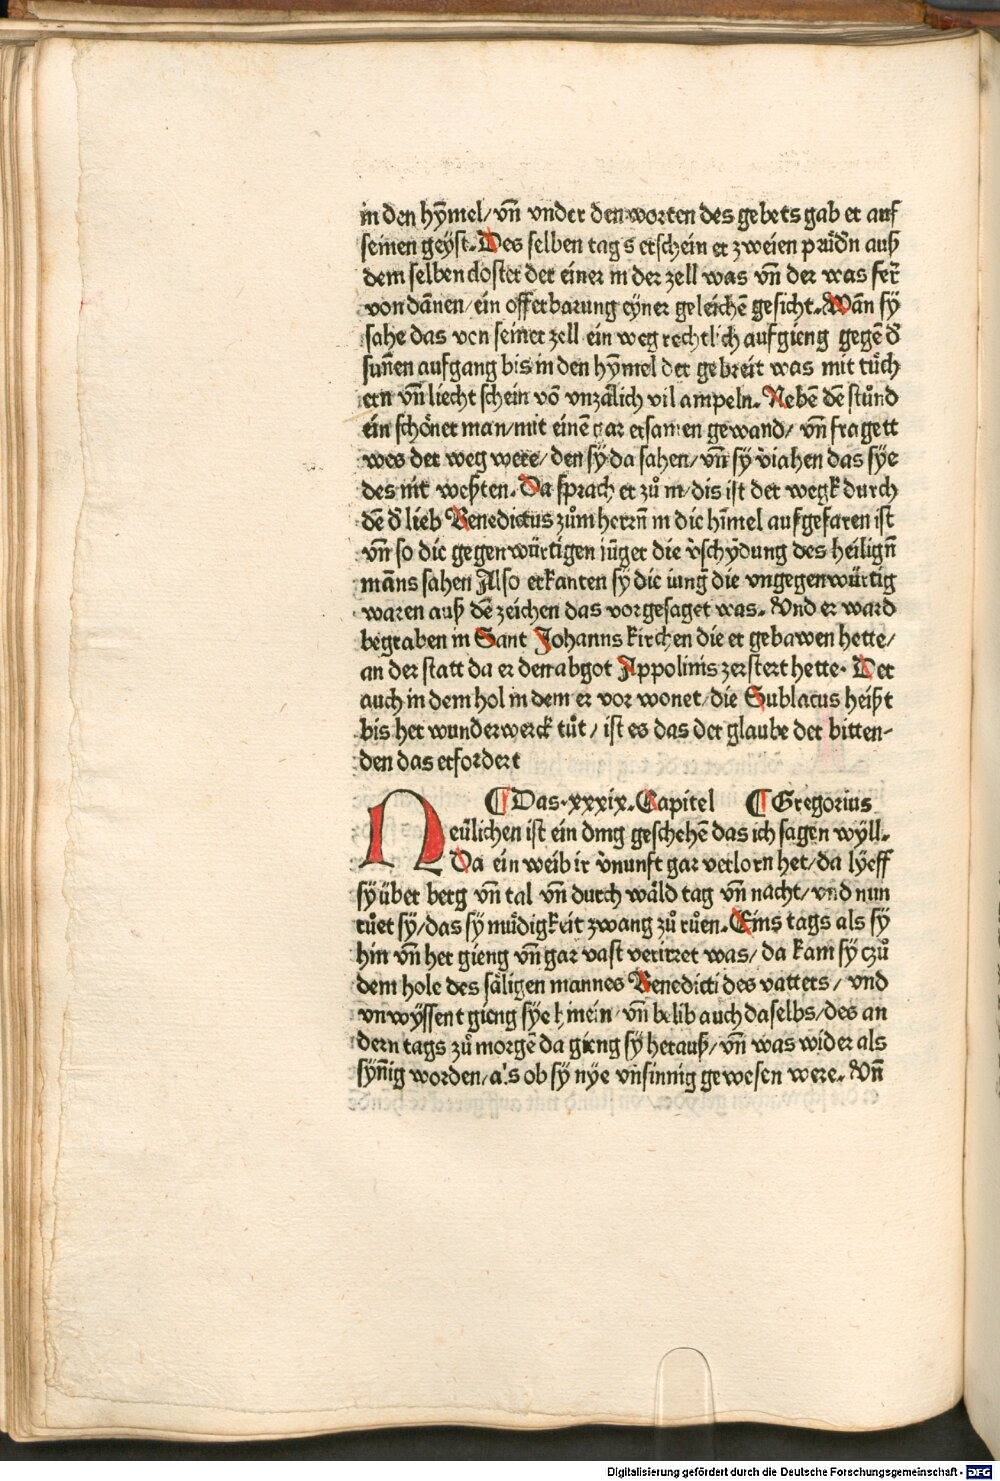 in den hȳmel/ vn̄ vnder den worten des gebets gab er auf
seinen geÿst. Des selben tags erschein er zweien prüd̄n auß
dem selben closter der einer in der zell was vn̄ der was fer̄
von dānen/ ein offerbarung eÿner geleichē gesicht. Wān sÿ
sahe das von seiner zell ein weg rechtlich aufgieng gegē d̄
sun̄en aufgang bis in den hȳmel der gebreit was mit tuͤch
ern vn̄ liecht schein vō vnzaͤlich vil ampeln. Nebē dē stuͦnd
ein schoͤner man/ mit einē gar ersamen gewand/ vn̄ fragett
wes der weg were/ den sÿ da sahen/ vn̄ sÿ v̇iahen das sÿe
des nit weßten. Da sprach er zuͦ in/ dis ist der wegk durch
dē d̄ lieb Benedictus zuͦm herrn̄ in die hīmel aufgefaren ist
vn̄ so die gegenwürtigen iūger die v̇schÿdung des heilign̄
māns sahen Also erkanten sÿ die iunḡ die vngegenwürtig
waren auß dē zeichen das vorgesaget was. Vnd er ward
begraben in Sant Johanns kirchen die er gebawen hette/
an der statt da er den abgot Appolinis zerstert hette. Der
auch in dem hol in dem er vor wonet/ die Sublacus heißt
bis her wunderwerck tuͦt/ ist es das der glaube der bitten-
den das erfordert
¶ Das .xxxix. Capitel ¶ Gregorius
Neülichen ist ein ding geschehē das ich sagen wÿll.
Da ein weib ir v̇nunft gar verlorn het/ da lÿeff
sÿ über berg vn̄ tal vn̄ durch waͤld tag vn̄ nacht/ vnd nun
ruͦet sÿ/ das sÿ muͤdigkeit zwang zuͦ ruͦen. Eins tags als sÿ
hin vn̄ her gieng vn̄ gar vast verirret was/ da kam sÿ czuͦ
dem hole des saͤligen mannes Benedicti des vatters/ vnd
vnwÿssent gieng sÿe hinein/ vn̄ belib auch daselbs/ des an
dern tags zuͦ morgē da gieng sÿ herauß/ vn̄ was wider als
sÿn̄ig worden/ als ob sÿ nÿe vnsinnig gewesen were. Vn̄
Digitalisierung gefördert durch die Deutsche Forschungsgemeinschaft - DFG